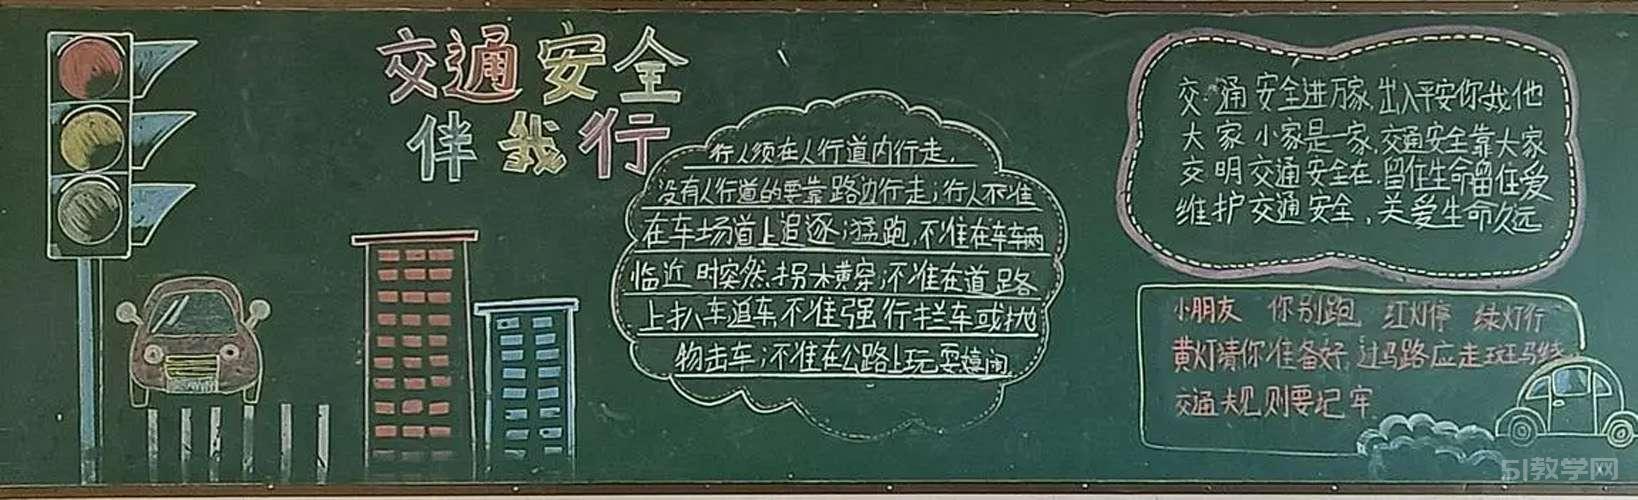 交通安全
伴我行
行人须在人行道内行走，
没有人行道的要靠路边行走；行人不准
在车场道上追逐；猛跑，不准在车车辆
临近时突然拐木黄穿；不准在道路
上扒车追车，不准强行拦车或抛
物击车；不准在公路上玩耍嬉闹
交通安全进万家，出入平安你我他
大家小家是一家，交通安全靠大家
交明交通安全在，留住生命留住爱
维护交通安全，关爱生命久远
小朋友 你别跑 红灯停 绿灯行
黄灯请你准备好，过马路应走斑马线
交通规则要记牢
51教学网